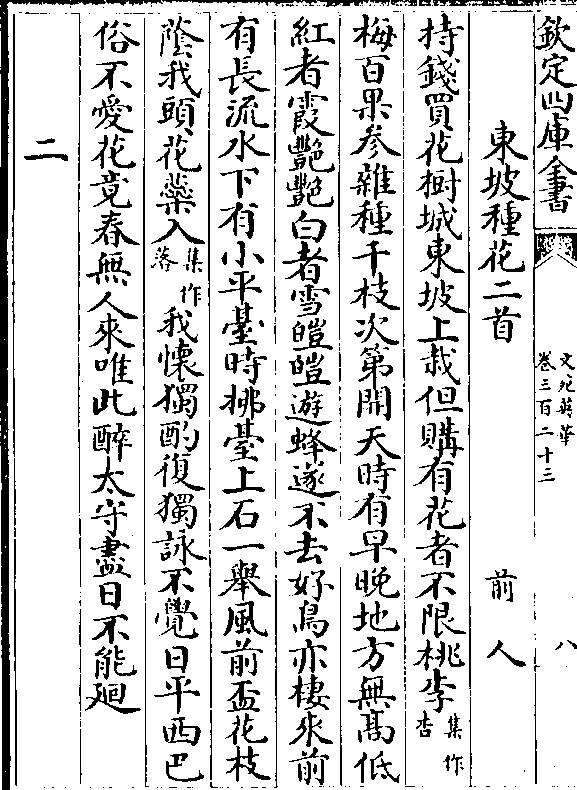 欽定四庫全書
文苑英華
卷三百二十三
八
東坡種花二首 前人
持錢買花樹城東坡上栽但購有花者不限桃李集作杏
梅百果参雜種千枝次第開天時有早晚地方無髙低
紅者霞艷艷白者雪皚皚遊蜂遂不去好鳥亦棲來前
有長流水下有小平臺時拂臺上石一舉風前盃花枝
蔭我頭花蘂入集作落我懷獨酌復獨詠不覺日平西巴
俗不愛花竟春無人來唯此醉太守盡日不能廻
二